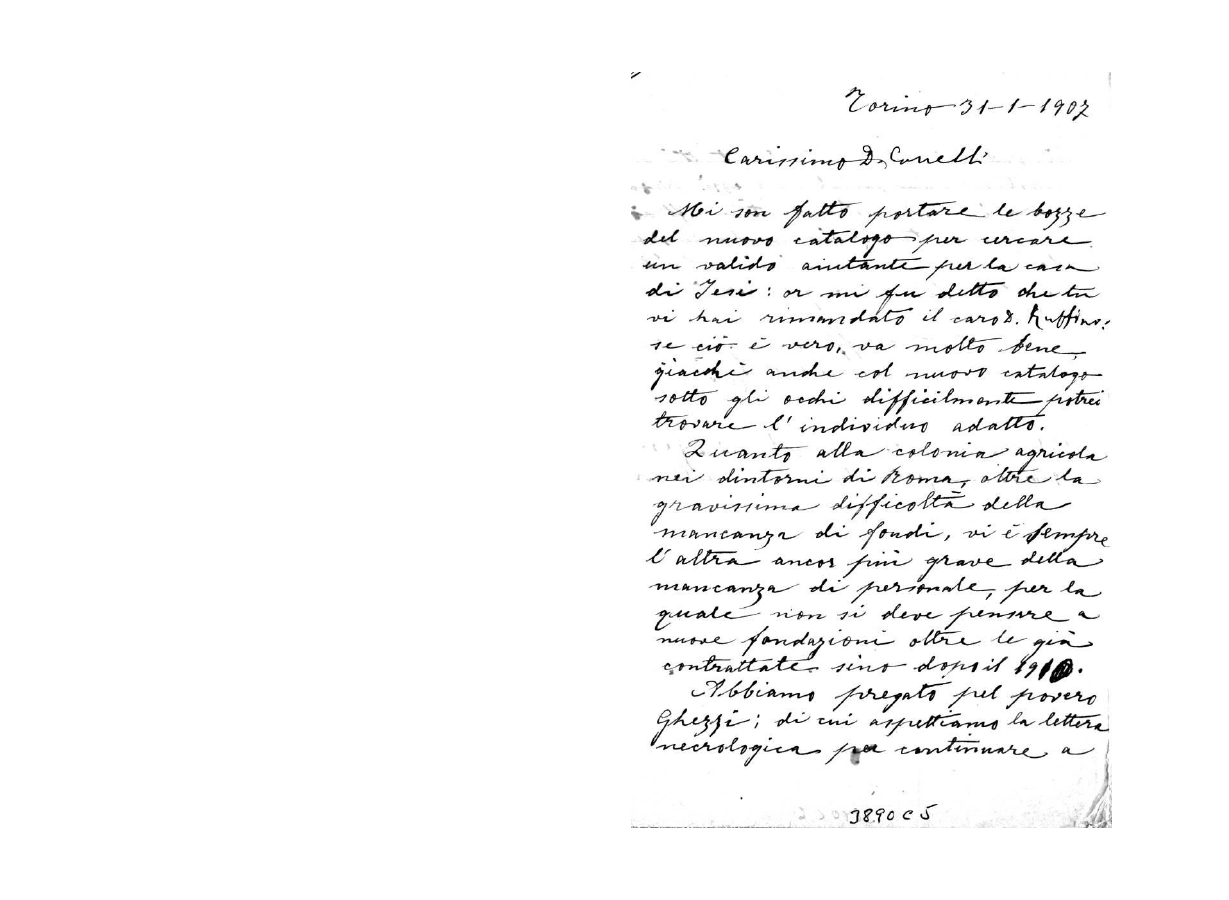 Torino 31-1-1907
Carissimo D. Conelli
Mi son fatto portare le bozze
del nuovo catalogo per cercare
un valido aiutante per la casa
di Jesi: or mi fu detto che tu
vi hai rimandato il caro D. Ruffino:
se ciò è vero, va molto bene,
giacchè anche col nuovo catalogo
sotto gli occhi difficilmente potrei
trovare l'individuo adatto.
Quanto alla colonia agricola
nei dintorni di Roma, oltre la
gravissima difficoltà della
mancanza di fondi, vi è sempre
l'altra ancor più grave della
mancanza di personale, per la
quale non si deve pensare a
nuove fondazioni oltre le già
contrattate sino dopo il 1910.
Abbiamo pregato pel povero
Ghezzi; di cui aspettiamo la lettera
necrologica per continuare a
3890 C 5